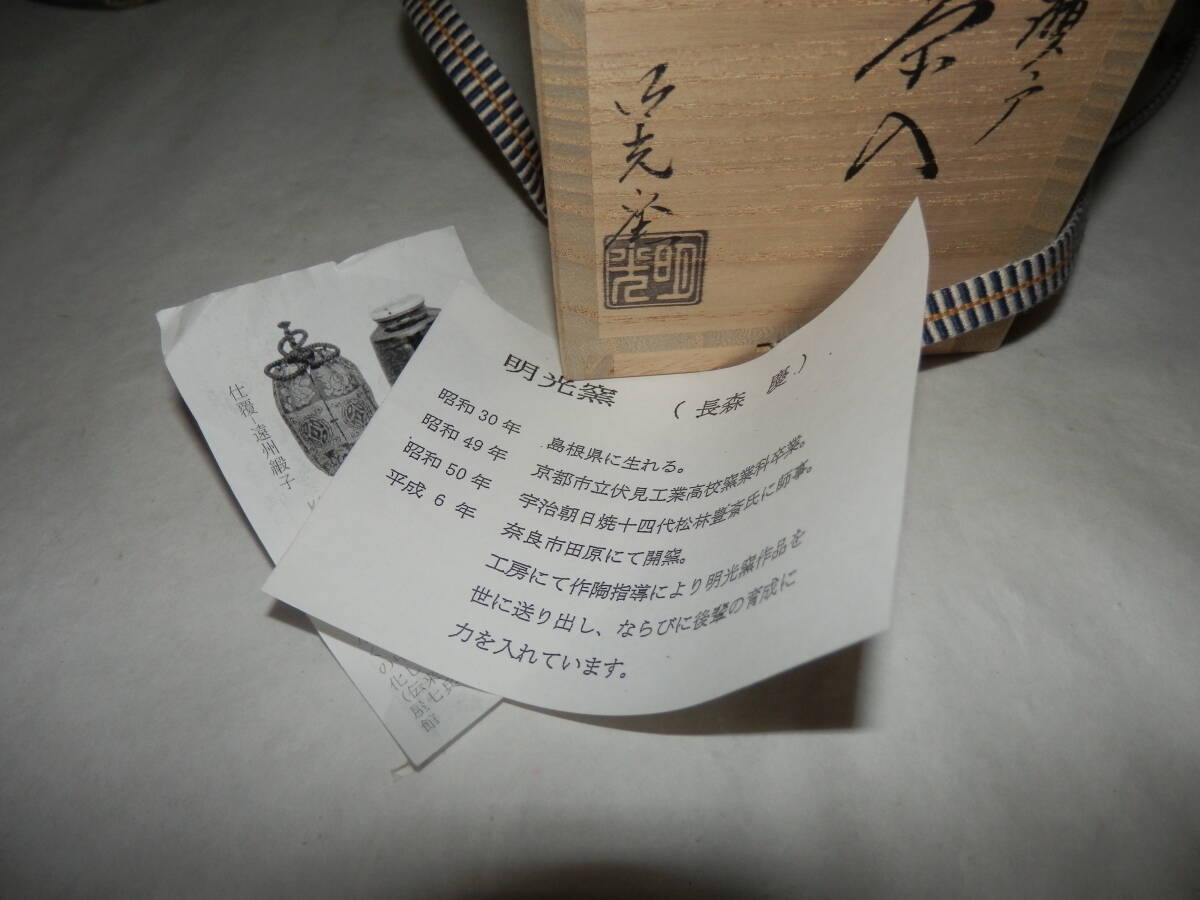 瀬戸
茶入
明光窯
明光
明光窯 (長森 慶)
昭和30年 島根県に生れる。
昭和49年 京都市立伏見工業高校窯業科卒業。
昭和50年 宇治朝日焼十四代松林豊斎氏に師事。
平成 6 年 奈良市田原にて開窯。
工房にて作陶指導により明光窯作品を
世に送り出し、ならびに後輩の育成に
力を入れています。
仕覆−遠州緞子